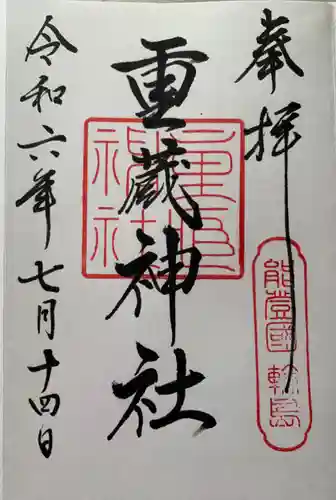 奉拝
能登國輪島
重蔵神社
重蔵神社
令和六年七月十四日